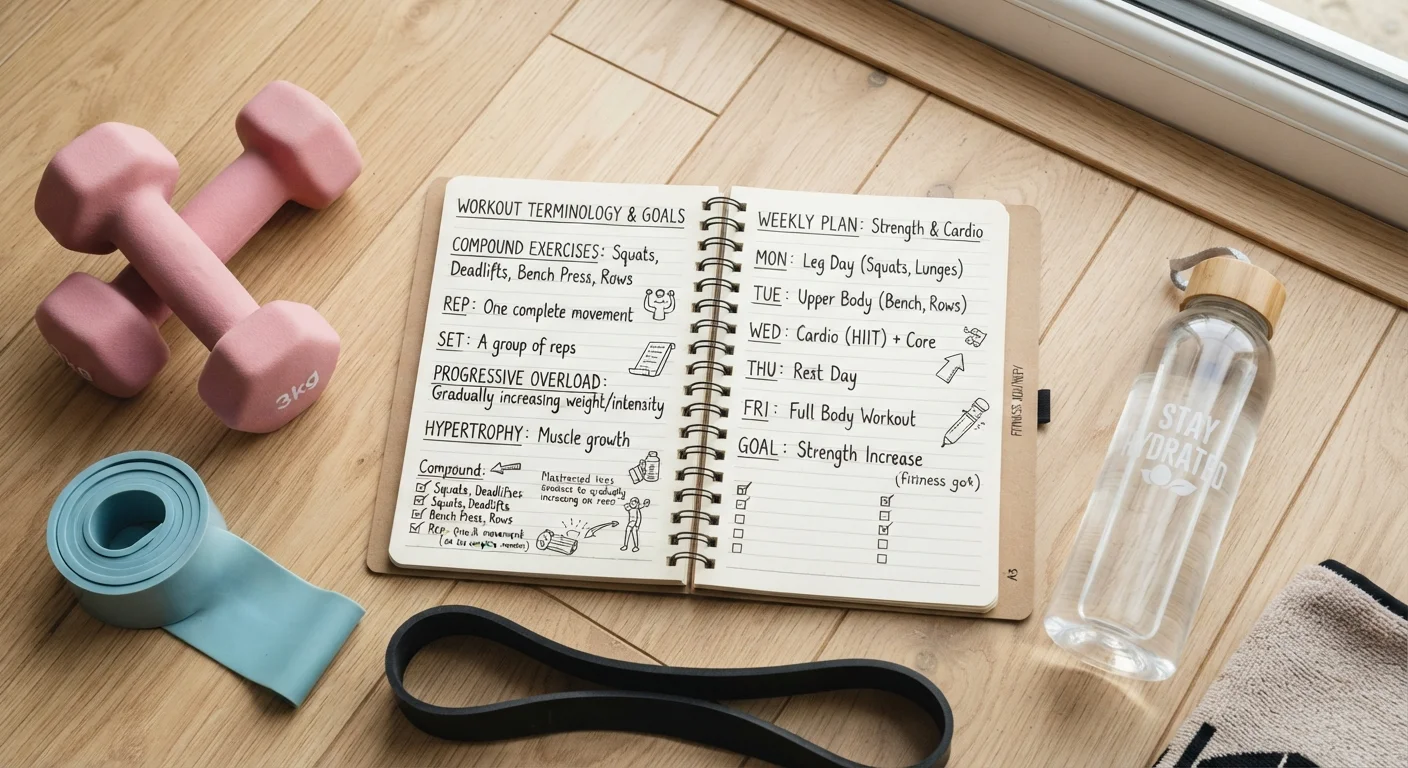 WORKOUT TERMINOLOGY & GOALS
COMPOUND EXERCISES: Squats,
Deadlifts, Bench Press, Rows
REP: One complete movement
SET: A group of reps
PROGRESSIVE OVERLOAD:
Gradually increasing weight/intensity
HYPERTROPHY: Muscle growth
Compound:
Squats, Deadlifies
Squats, Deadlifts
Bench Press, Rows
increasing
WEEKLY PLAN: Strength & Cardio
MON: Leg Day (Squats, Lunges)
TUE: Upper Body (Bench, Rows)
WED: Cardio (HIIT) + Core
THU: Rest Day
FRI: Full Body Workout
GOAL: Strength Increase
3kg
STAY
HYDRATED